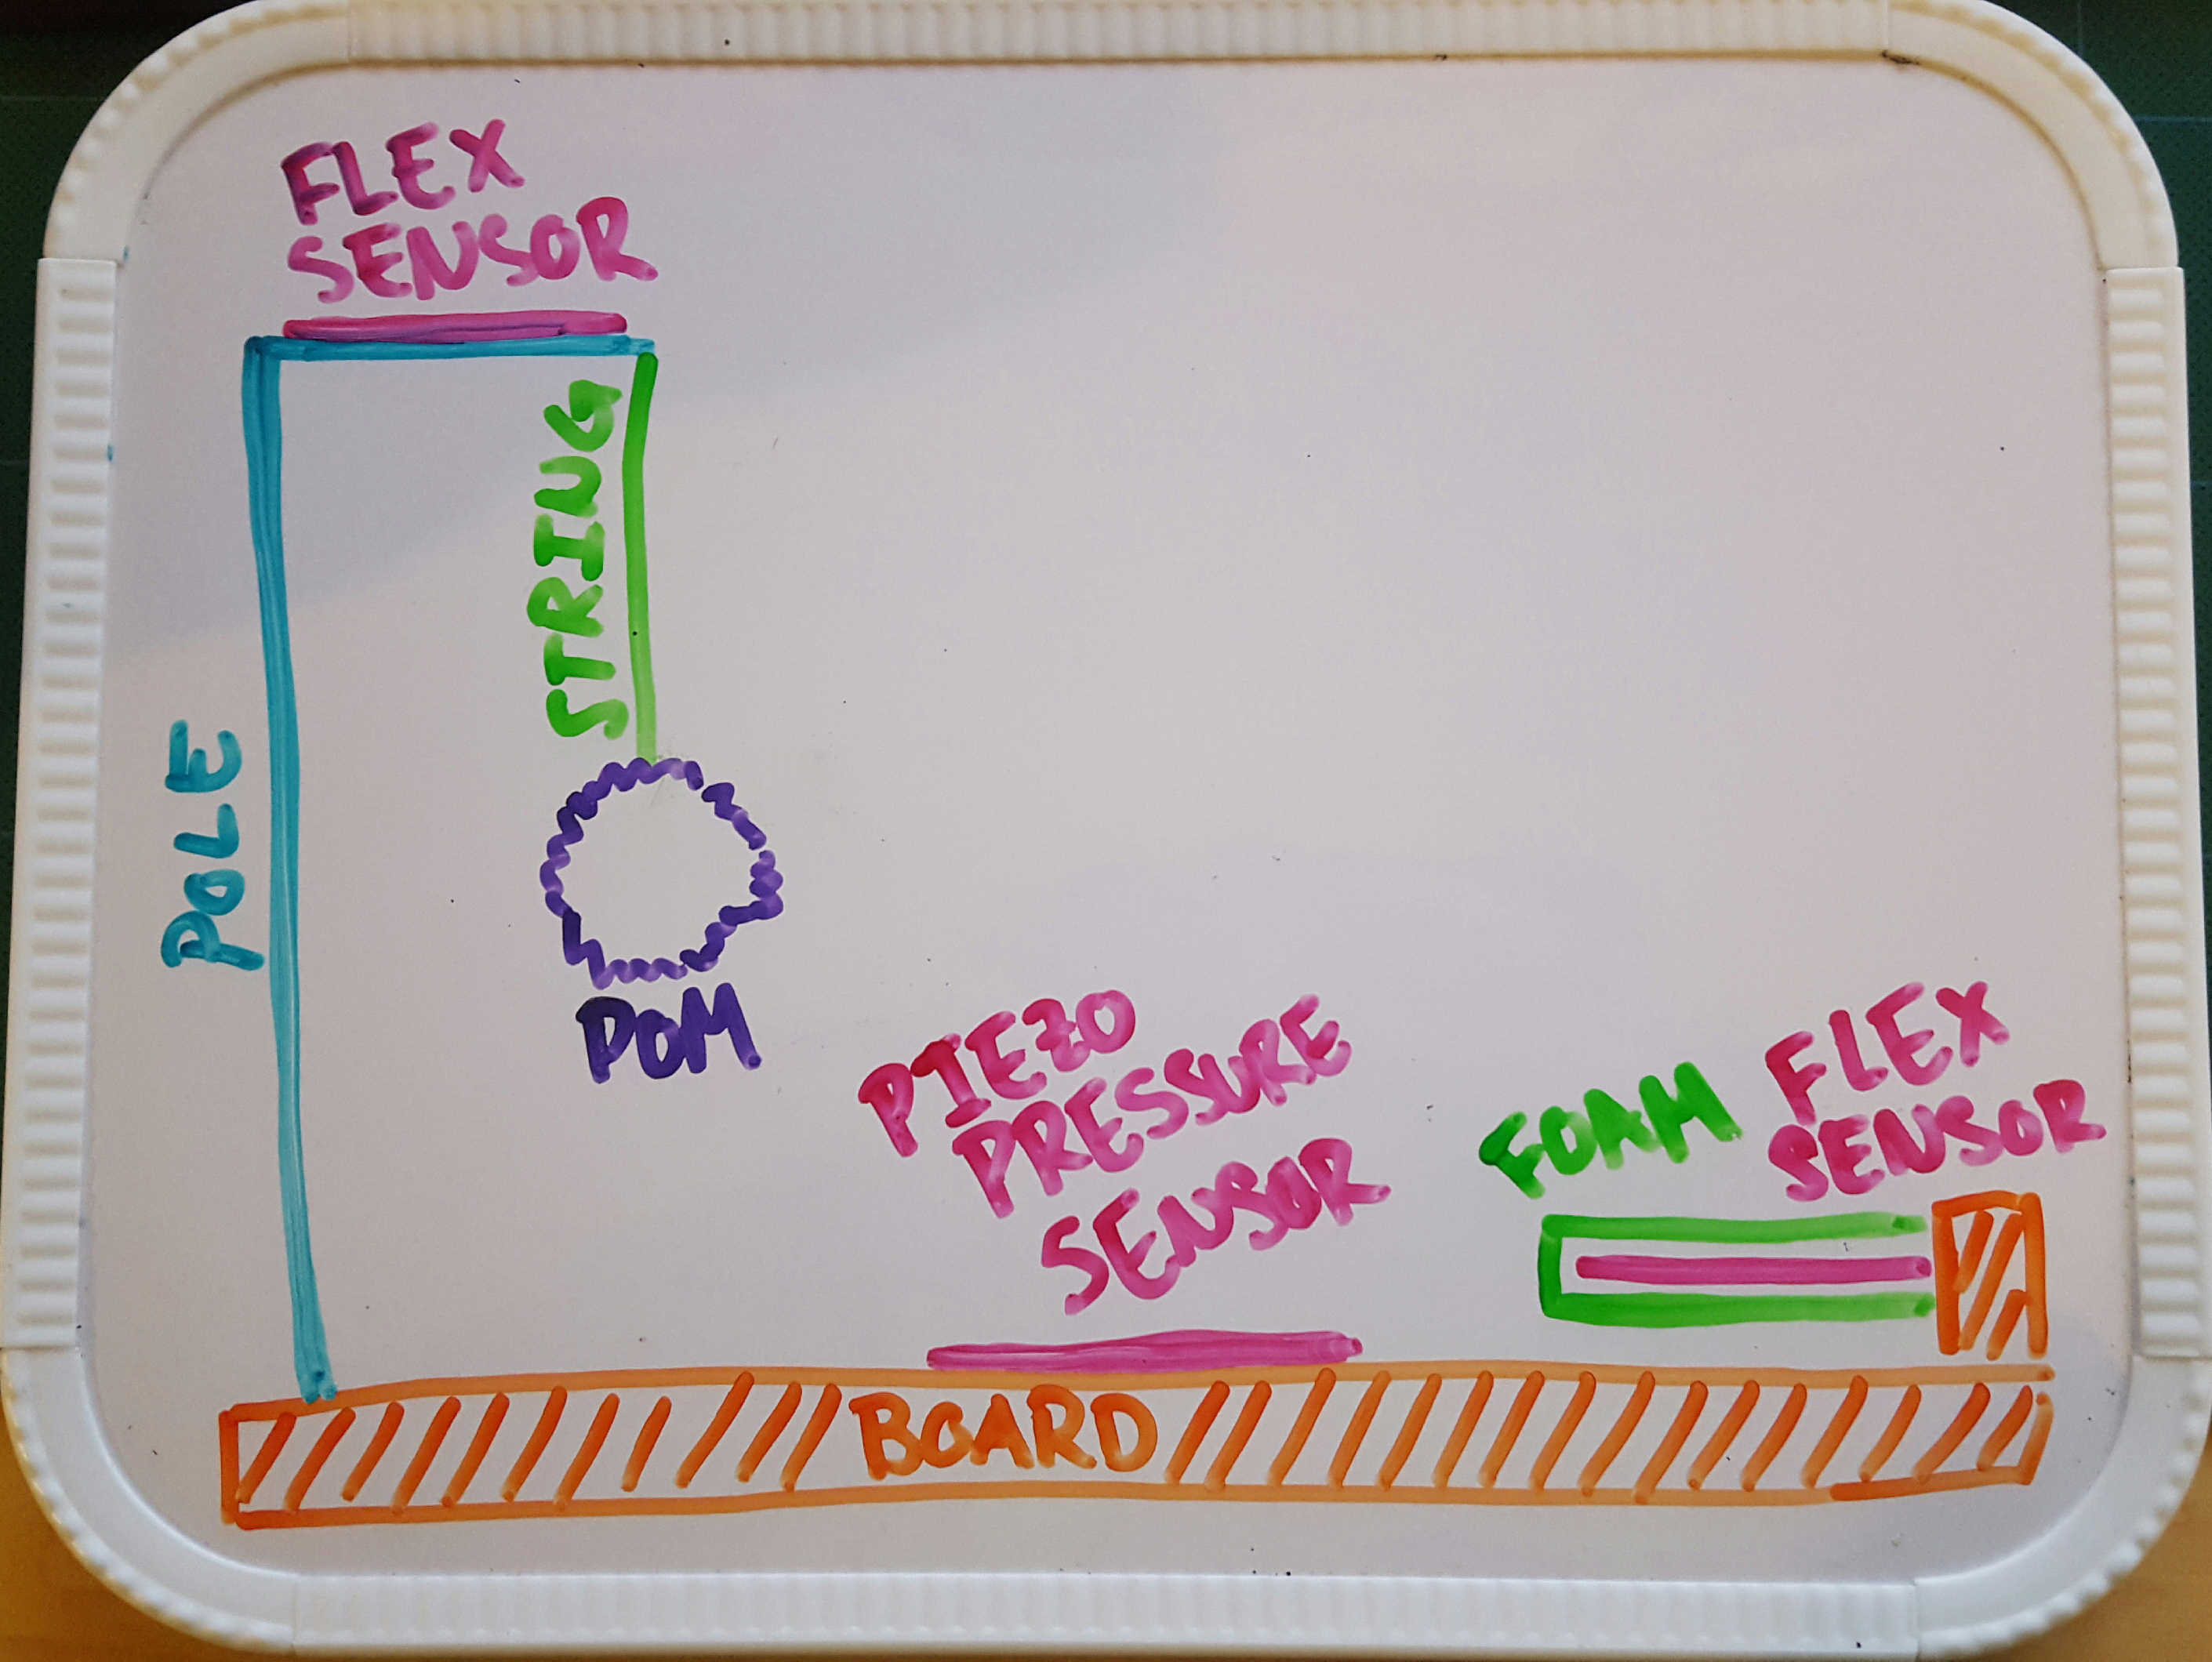 FLEX
SENSOR
STRING
POLE
POM
PIEZO
PRESSURE
SENSOR
FOAM
FLEX
SENSOR
BOARD